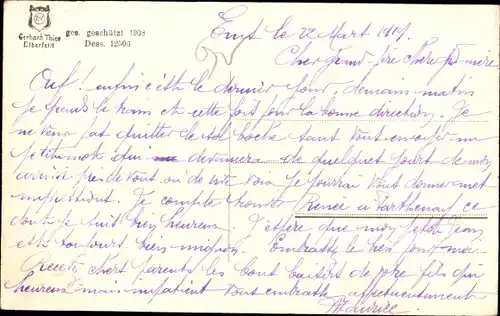 Gerhard Thien
Elberfeld
ges. geschützt 1908
Dess. 12506
le 22 Mart 1919.
Cher grand père chère
Ouf! enfin c'est le dernier jour, demain matin
je prends le train et cette fois pour la bonne direction. Je
ne veux pas quitter le sol boche sans vous envoyer un
petit mot qui de quelques jours de mon
arrivée près de vous où de vive voix je pourrai vous donner mes
impressions. Je compte trouver Renée à Parthenay ce
dont je suis bien heureux. J'espère que mon petit Jean
est toujours bien mignon. Embrasse le bien pour moi.
Recevez chers parents les bons baisers de votre fils qui
heureux mais impatient vous embrasse affectueusement
Maurice